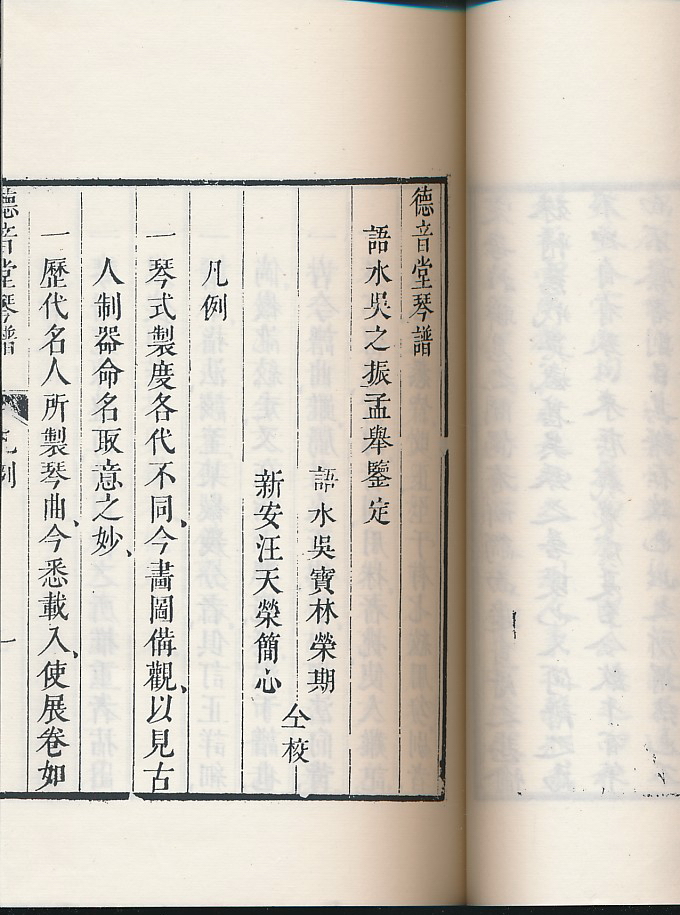 德音堂琴譜
語水吳之振孟舉鑒定
語水吳寶林榮期
新安汪天榮簡心
仝校
凡例
一琴式製度各代不同、今畵圖備觀、以見古
人制器命名取意之妙、
一歷代名人所製琴曲、今悉載入、使展卷如
德音堂琴譜
凡例
一